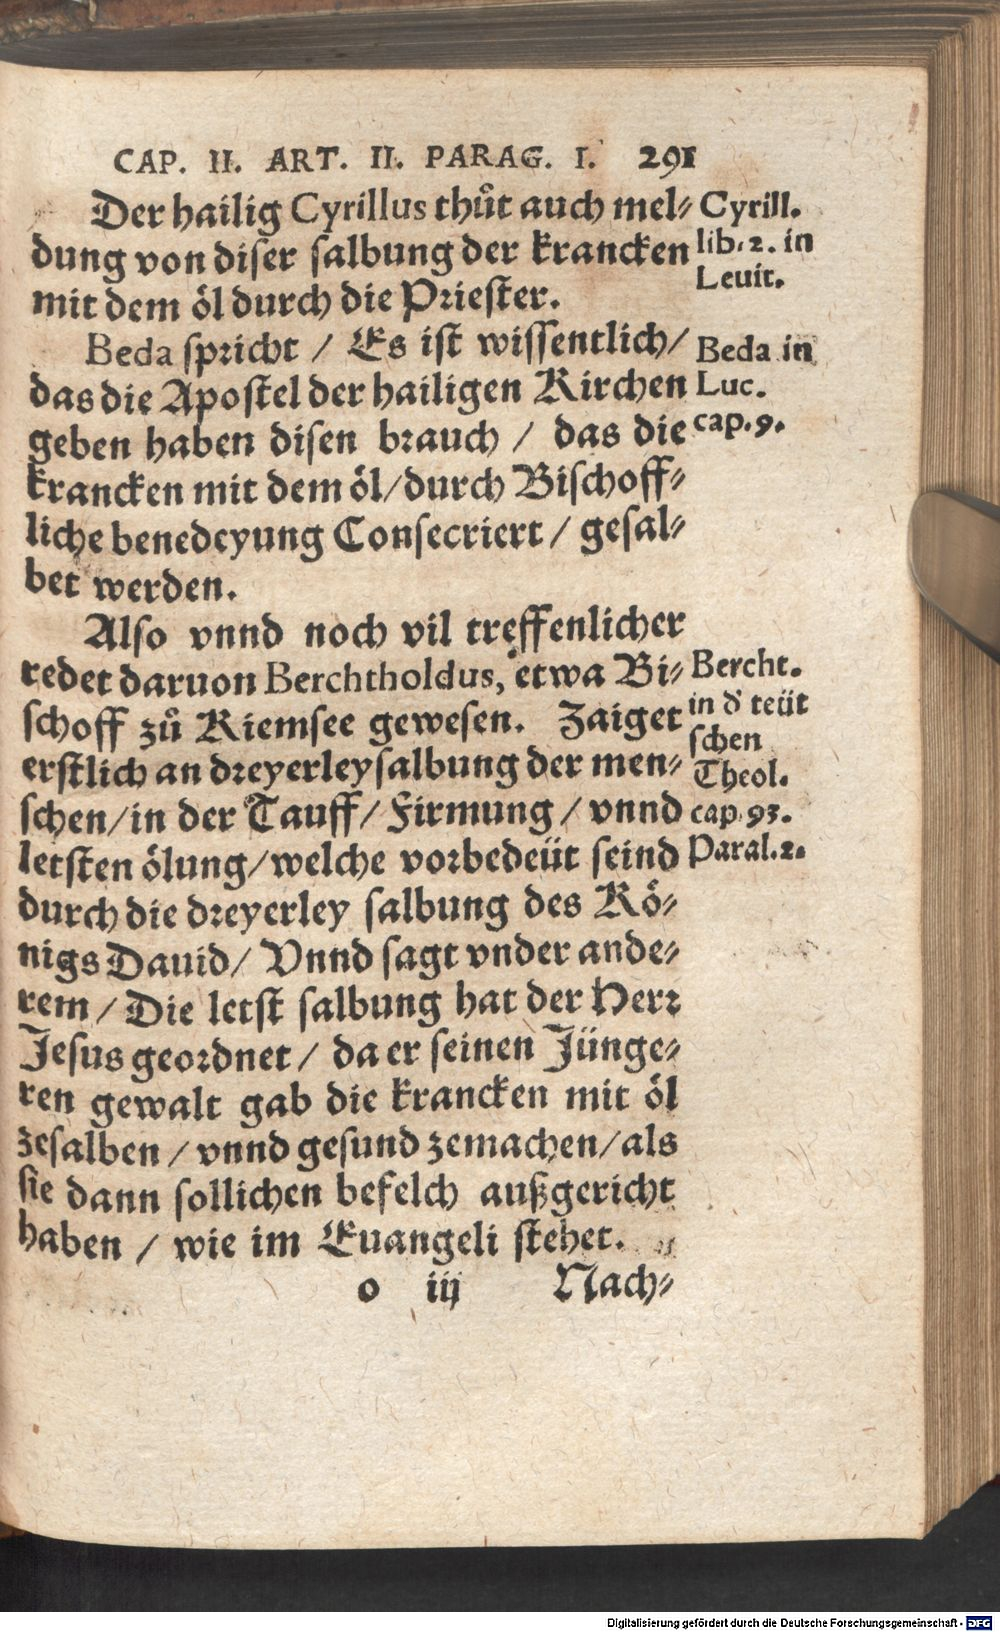 CAP. II. ART. II. PARAG. I. 291
Der hailig Cyrillus thůt auch mel⸗
dung von diser salbung der krancken
mit dem öl durch die Priester.
Beda spricht / Es ist wissentlich/
das die Apostel der hailigen Kirchen
geben haben disen brauch / das die
krancken mit dem öl/durch Bischoff⸗
liche benedeyung Consecriert / gesal⸗
bet werden.
Also vnnd noch vil treffenlicher
redet daruon Berchtholdus, etwa Bi⸗
schoff zů Kiemsee gewesen. Zaiget
erstlich an dreyerley salbung der men⸗
schen/in der Tauff/ Firmung / vnnd
letsten ölung/welche vorbedeüt seind
durch die dreyerley salbung des Kö⸗
nigs Dauid/ Vnnd sagt vnder ande⸗
rem / Die letst salbung hat der Herr
Jesus geordnet / da er seinen Jünge⸗
ren gewalt gab die krancken mit öl
zesalben / vnnd gesund zemachen/als
sie dann sollichen befelch außgericht
haben / wie im Euangeli stehet.
o iij Nach⸗
Cyrill.
lib. 2. in
Leuit.
Beda in
Luc.
cap. 9.
Bercht.
in d' teüt
schen
Theol.
cap. 93.
Paral. 2.
Digitalisierung gefördert durch die Deutsche Forschungsgemeinschaft - DFG